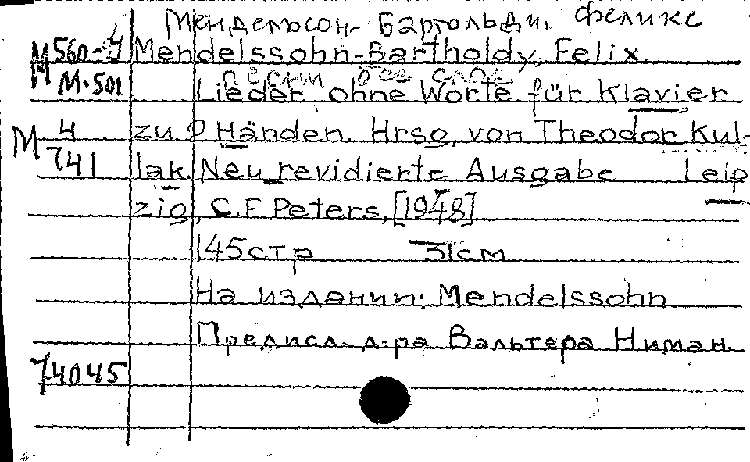 Мендельсон-Бартольди, Феликс
М560-4 Mendelssohn-Bartholdy, Felix.
песни без слов
М М-501 Lieder ohne Worte für Klavier
М 4 zu 2 Händen. Hrsg. von Theodor Kul-
741 lak. Neu revidierte Ausgabe Leip
zig, C.F. Peters, [1948]
145 стр 31 см
На издании: Mendelssohn
Предисл. д-ра Вальтера Ниман
74045